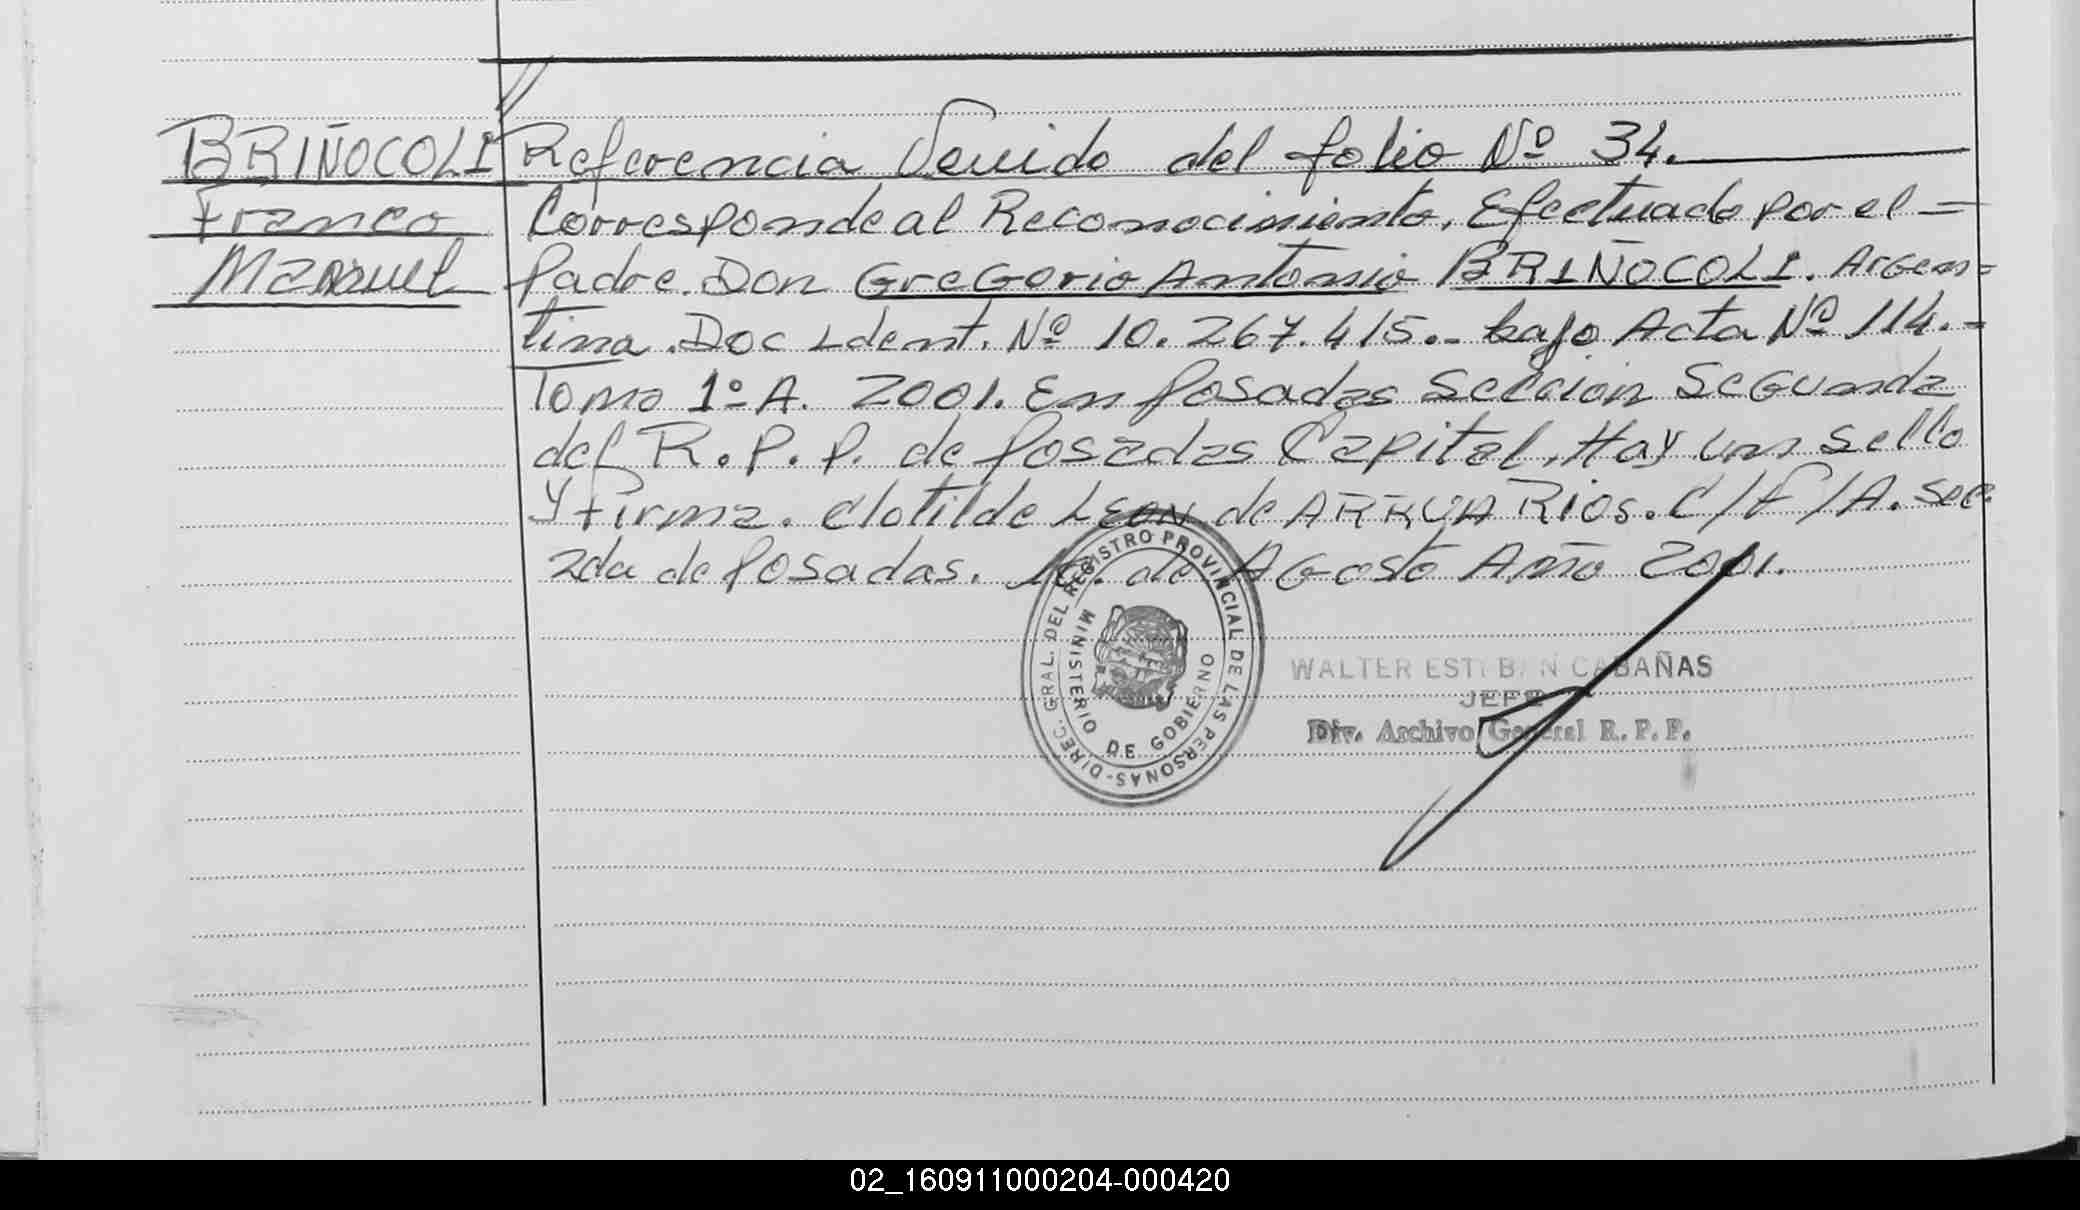 BRIÑOCOLI
Franco
Manuel
Referencia Venido del folio Nº 34.
Corresponde al Reconocimiento, Efectuado por el =
Padre. Don GreGorio Antonio BRIÑOCOLI. ArGen=
tina. Doc Ident. Nº 10.267.415.- bajo Acta Nº 114.-
Tomo 1º A. 2001. En Posadas Sección SeGunda
del R.P.P. de Posadas Capital, Hay un sello
y firma. Clotilde LEON de RIOS. C/F/A. Sec
2da de Posadas. de AGosto Año 2001.
DIREC. GRAL. DEL REGISTRO PROVINCIAL DE LAS PERSONAS-
MINISTERIO DE GOBIERNO
WALTER ESTEBAN CABAÑAS
JEFE
Div. Archivo General R. P. P.
02_160911000204-000420